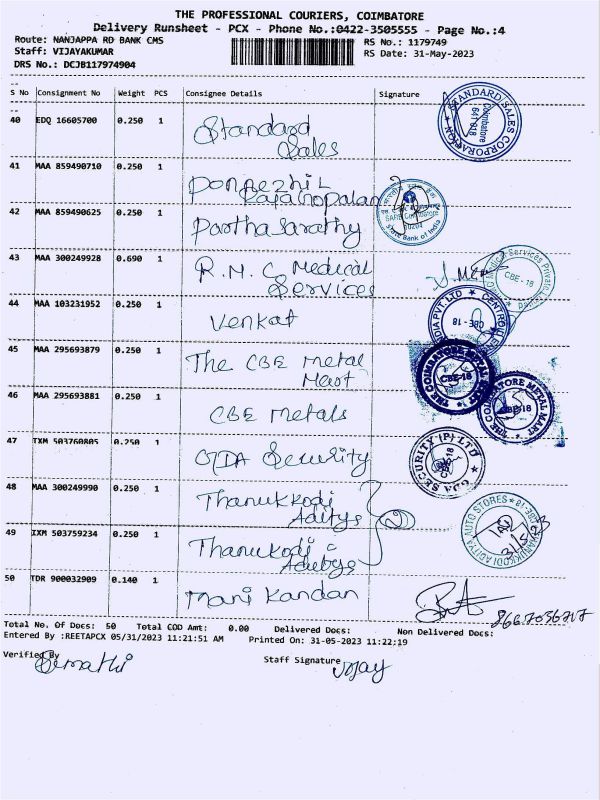 THE PROFESSIONAL COURIERS, COIMBATORE
Delivery Runsheet - PCX - Phone No.:0422-3505555 - Page No.:4
Route: NANJAPPA RD BANK CMS
RS No.: 1179749
Staff: VIJAYAKUMAR
RS Date: 31-May-2023
DRS No.: DCJB117974904
S No Consignment No Weight PCS Consignee Details Signature
40 EDQ 16605700 0.250 1 Standard Sales
STANDARD SALES CORPORATION Coimbatore 641 018
41 MAA 859490710 0.250 1 Ponnezhil Rajagopalan
42 MAA 859490625 0.250 1 Parthasarathy
State Bank of India
43 MAA 300249928 0.690 1 R.M.C. Medical Services
Medical Services Private CBE - 18
44 MAA 103231952 0.250 1 Venkat
INDIA PVT. LTD CBE - 18
45 MAA 295693879 0.250 1 The CBE Metal Mart
THE COIMBATORE METAL MART CBE-18
46 MAA 295693881 0.250 1 CBE Metals
THE COIMBATORE METAL MART CBE-18
47 IXM 503760805 0.250 1 GDA Security
GDA SECURITY (P) LTD
48 MAA 300249990 0.250 1 Thanukkodi Aditya
49 IXM 503759234 0.250 1 Thanukodi Aditya
THANUKKODI ADITYA AUTO STORES
50 TDR 900032909 0.140 1 Mani Kandan
Total No. Of Docs: 50 Total COD Amt: 0.00 Delivered Docs: Non Delivered Docs:
Entered By :REETAPCX 05/31/2023 11:21:51 AM Printed On: 31-05-2023 11:22:19
Verified By
Staff Signature Vijay